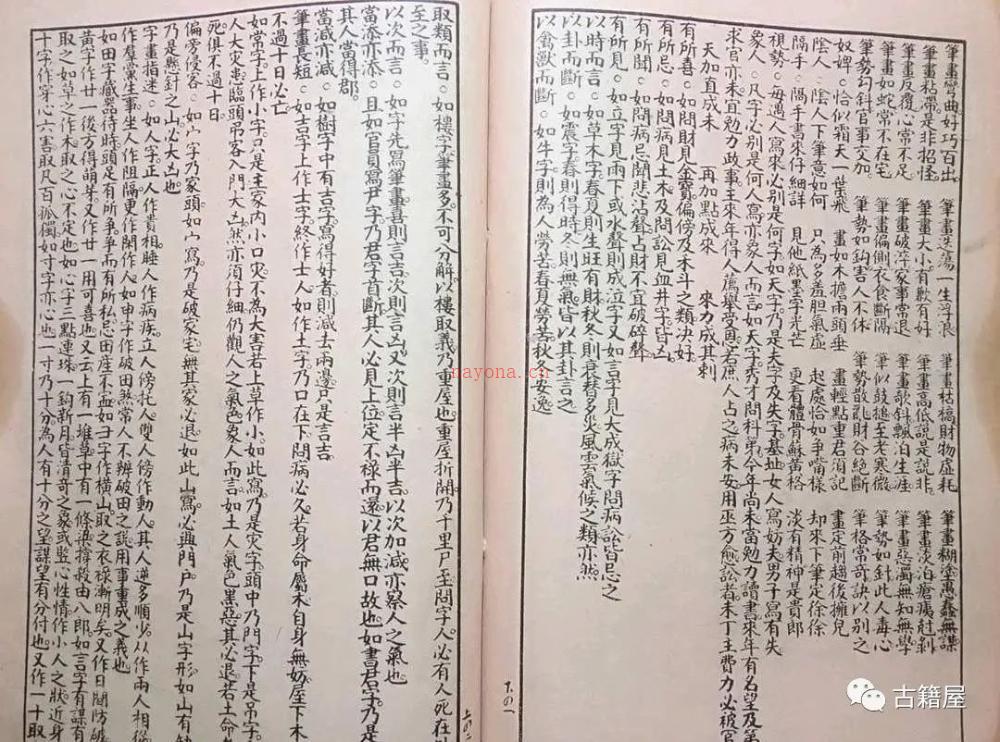 筆畫彎曲好巧百出 筆畫迭蕩一生浮浪 筆畫枯槁財物虛耗 筆畫糊塗愚蠢無謀
筆畫粘帶是非招怪 筆畫大小有歉有好 筆畫高低說是說非 筆畫淡泊瘡痍尅剝
筆畫反覆心常不足 筆畫破淬家事常退 筆畫歌斜飄泊生涯 筆畫惡濁無知無學
筆畫如蛇常不在宅 筆畫偏側衣食斷隔 筆似鼓搥至老寒微 筆勢如針此人毒心
筆勢勾斜官事交加 筆勢如鈎害人不休 筆勢散亂財谷絕斷 筆格常奇訣以別之
奴婢。恰似霜天一葉飛 畫如木擔兩頭垂 起處恰如爭嘴樣 畫定前趨後擁兒
陰人。陰人下筆意如何 只為多羞胆氣虛 畫輕點重君須記 却來下筆定徐徐
隔手。隔手書來仔細詳 見他紙墨字光芒 更有體骨蘇黃格 淡有精神是貴郎
視勢。每遇人寫來必別是何字如天字乃是夫字及失字基址女人寫妨夫男子寫有失
象人。凡字必別是何人寫亦象人而言如天字秀才問科第今年尚未當勉力讀書來年有名望及第
求官亦未宜勉力政事主來年得人薦舉受恩若庶人占之病未安用巫方愈訟者未丁主費力必被官
天加直成未 再加點成來 來力成其剌
有所喜。如問財見金寶偏傍及禾斗之類決好
有所忌。如問病見土木及問訟見血井字皆凶
有所聞。如問病忌聞悲泣聲占財不宜破碎聲
有所見。如立字見雨下或水聲則成泣字又如言字見大成獄字問病訟皆忌之
以時而言。如草木字春夏則生旺有財秋冬則衰替多災風雲氣候之類亦然
以卦而斷。如震字春則得時冬則無氣皆以其卦言之
以禽獸而斷。如牛字則為人勞苦春夏勞苦秋冬安逸
下の一
上の二
取類而言。如樓字筆畫多不可分解以樓取義乃重屋也重屋折開乃千里尸至問字人必有人死在
至之事。
以次而言。如字先寫筆畫喜則言吉次則言凶又次則言半凶半吉以次加減亦察人之氣也
當添亦添。且如官員寫尹字乃君字首斷其人必見上位定不祿而還以君無口故也如書君字乃是
其人當得郡。
當減亦減。如樹字中有吉字寫得好者則減去兩邊只是言吉
筆畫長短。如吉字上作士字終作士人如作土字乃口在下問病必久若身命屬木白身無妨屋下木
不過十日必亡
如常字上作小字只是主家內小口灾不為大害若上草作小如此寫乃是灾字頭中乃門字下是吊字
人大灾患臨頭吊客入門大凶然亦須仔細仍觀人之氣色象人而言如土人氣色黑惡其必退若土命
死俱不過十日。
偏旁侵客。如宀字乃家頭如宀寫乃是破家宅無其家必退如此山寫必興門戶乃是山字形如山有
乃是無針之山必大凶也
字畫指迷。如人字正人作貴相睡人作病疾立人傍托人雙人傍作動人其人逆多順少从作兩人相從
作群黨生事坐人作阻隔更作開作人如申字作破田煞常人不辨破田之說用事重成之義也
如田字藏器待時頭足有所爭爭而有所私忌田產不益如彐字作橫山取之衣祿漸明矣又作日間防破
黃字作廿一後方得萌芽又作廿一用可喜也又云上有一堆草中有一條梁撐殺由八郎如言字有謀有
取之如草之作木取之心不定也如心字三點連珠一鈎新月皆清奇之象或監心性情作小人之狀近身
十字作穿心六害取尺百孤獨如寸字亦心也一寸乃十分為人有十分之望謀望有分付也又作一十取
nayona.cn
古籍屋